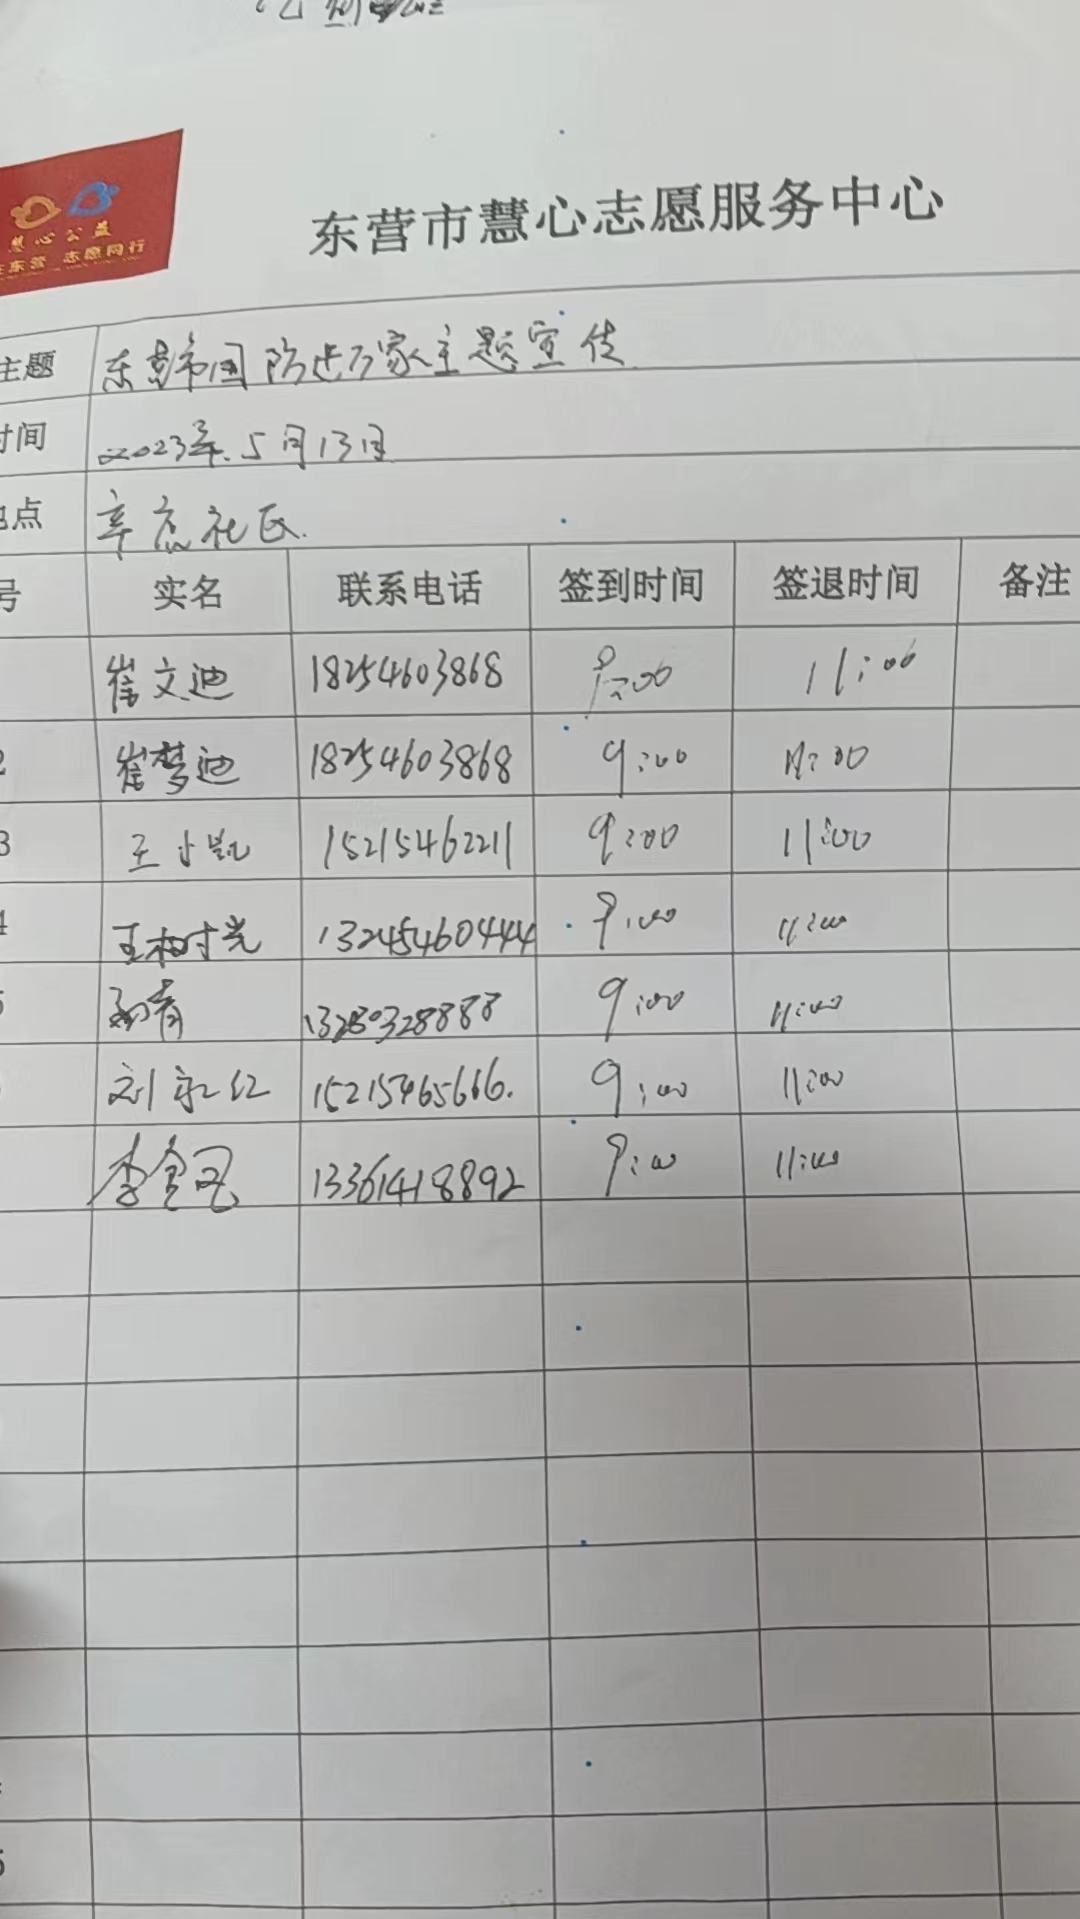 慧心公益
东营 志愿同行
东营市慧心志愿服务中心
主题 东营市国防进万家主题宣传
时间 2023年.5月13日
地点 辛店社区.
号 实名 联系电话 签到时间 签退时间 备注
崔文迪 18254603868 9:00 11:00
2 崔梦迪 18254603868 9:00 11:00
3 王小凯 15215462211 9:00 11:00
4 王柏时光 13245460444 9:00 11:00
5 青 13280328888 9:00 11:00
刘永红 15215465666. 9:00 11:00
李金 13361418892 9:00 11:00
5